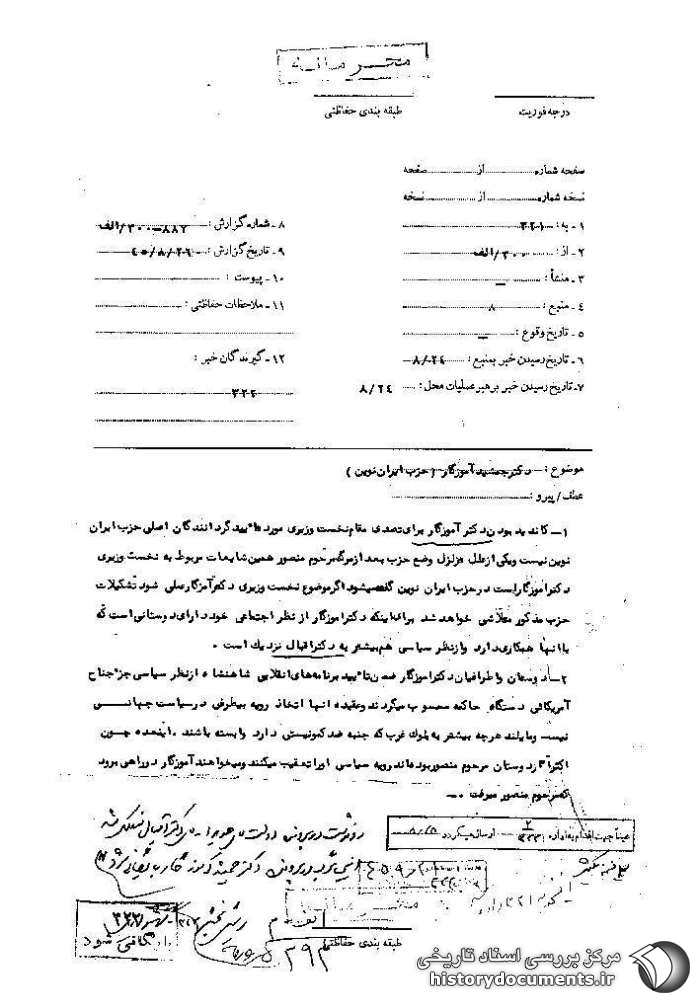 محرمانه
درجه فوریت
طبقه بندی حفاظتی
صفحه شماره از صفحه
نسخه شماره از نسخه
۱ - به : ۳۲۱
۲ - از : ۳۰۰/الف
۳ - منشأ : -
۴ - منبع : ۸
۵ - تاریخ وقوع : -
۶ - تاریخ رسیدن خبر بمنبع : ۸/۲۴
۷ - تاریخ رسیدن خبر برهبر عملیات محل : ۸/۲۴
۸ - شماره گزارش : ۸۸۲-۳۰۰/الف
۹ - تاریخ گزارش : ۴۵/۸/۲۶
۱۰ - پیوست :
۱۱ - ملاحظات حفاظتی :
۱۲ - گیرندگان خبر :
۳۲۲
موضوع : دکتر جمشید آموزگار ( حزب ایران نوین )
عطف / پیرو :
۱- کاندید بودن دکتر آموزگار برای تصدی مقام نخست وزیری مورد تائید گردانندگان اصلی حزب ایران
نوین نیست و یکی از علل تزلزل وضع حزب بعد از مرگ مرحوم منصور همین شایعات مربوط به نخست وزیری
دکتر آموزگار است در حزب ایران نوین گفته میشود اگر موضوع نخست وزیری دکتر آموزگار عملی شود تشکیلات
حزب مذکور متلاشی خواهد شد برای اینکه دکتر آموزگار از نظر اجتماعی خود دارای دوستانی است که
با آنها همکاری دارد و از نظر سیاسی هم بیشتر به دکتر اقبال نزدیک است .
۲- دوستان و اطرافیان دکتر آموزگار ضمن تائید برنامه های انقلابی شاهنشاه از نظر سیاسی جز جناح
آمریکائی دستگاه حاکمه محسوب میگردند و عقیده آنها اتخاذ رویه بیطرفی در سیاست جهانی
نیست و مایلند هرچه بیشتر به بلوک غرب که جنبه ضد کمونیستی دارد وابسته باشند . این عده چون
اکثرا از دوستان مرحوم منصور بوده اند رویه سیاسی او را تعقیب میکنند و میخواهند آموزگار در راهی برود
که مرحوم منصور میرفت .
عینا جهت اقدام به اداره ارسال میگردد
محرمانه
طبقه بندی حفاظتی
بایگانی شود
مرکز بررسی اسناد تاریخی
historydocuments.ir